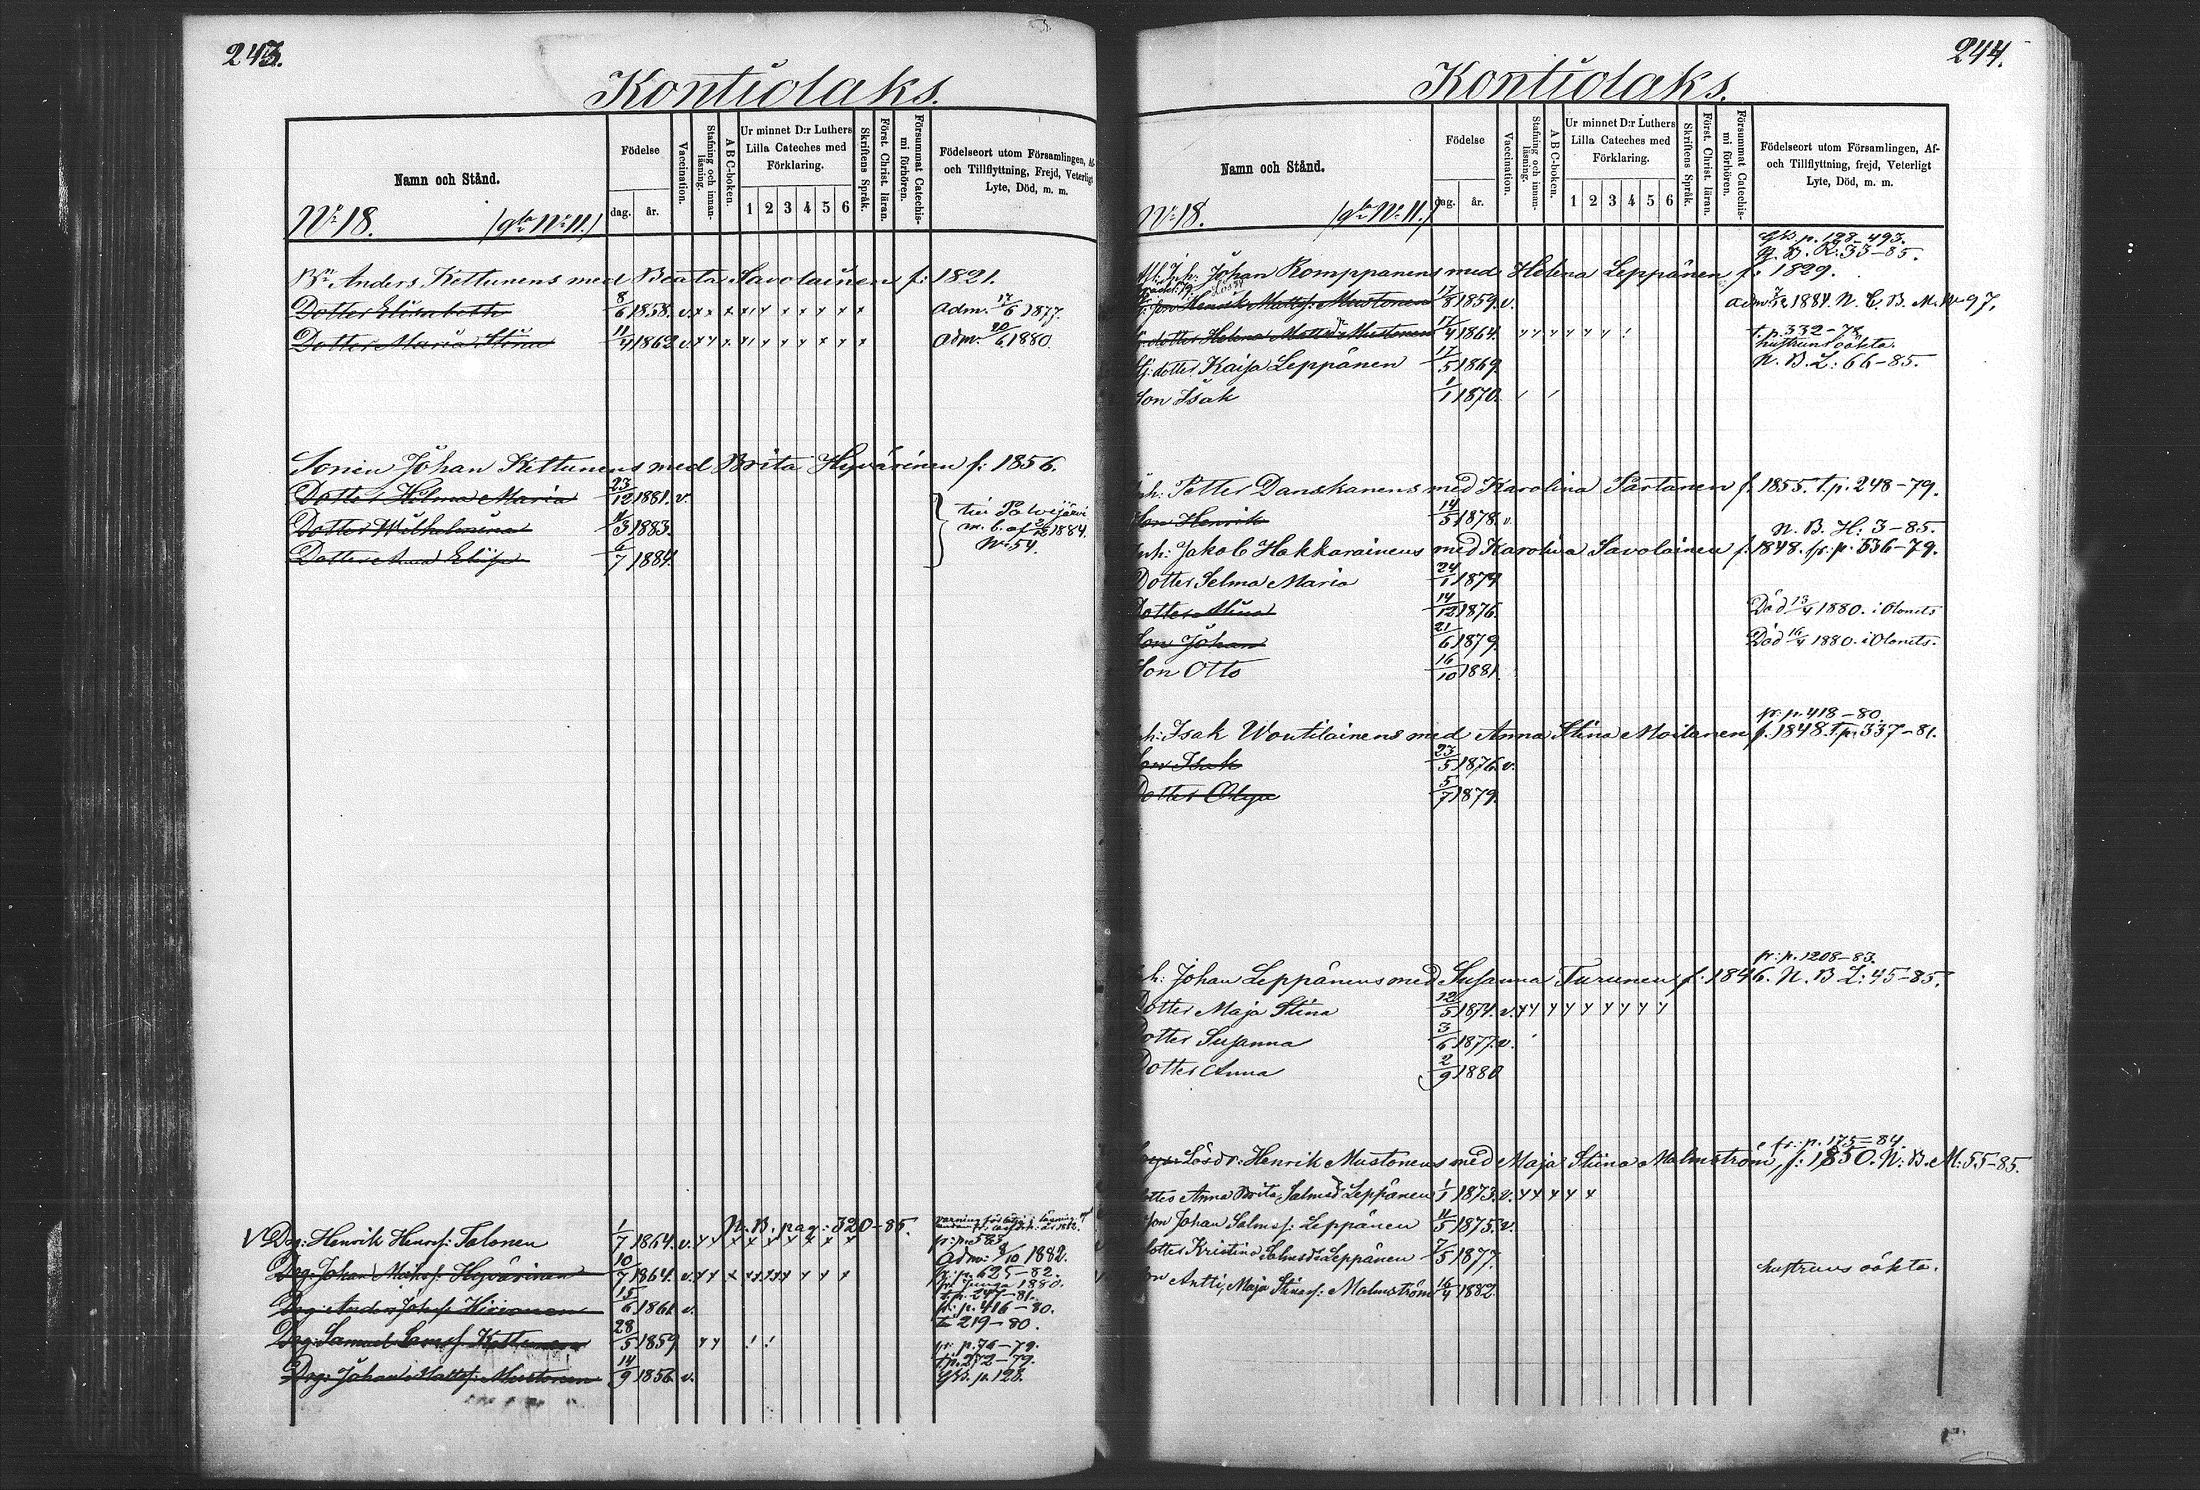 243.
Kontiolaks.
Namn och Stånd.
Födelse
dag. år.
Vaccination.
Stafning och innanläsning.
A B C-boken.
Ur minnet D:r Luthers Lilla Cateches med Förklaring.
1 2 3 4 5 6
Skriftens Språk.
Först. Christ. läran.
Försummat Catechismi förhören.
Födelseort utom Församlingen, Af- och Tillflyttning, Frejd, Veterligt Lyte, Död, m. m.
No 18. (gla No 11.)
Bn Anders Kettunens med Beata Savolainen f: 1821.
Dotter Elisabeth 8/6 1858. v. adm. 17/6 1877.
Dotter Maria Stina 11/4 1862 v. adm. 20/6 1880
Sonen Johan Kettunens med Brita Hyvärinen f: 1856.
Dotter Helma Maria 23/12 1881. v.
Dotter Wilhelmina 4/3 1883.
till Polvijärvi
m. b. af 1884.
No 54.
Dotter Elisa 6/7 1884.
N. B. pag: 320-85.
V Drg: Henrik Henrss: Talonen 1/7 1864. v. p: p. 583
adm: 8/10 1882.
Drg: Johan Mökss: Hyvärinen 10/7 1864. v. fr: p. 625-82.
1880.
t. p. 247-81.
Drg: Anders Johss: Hirvonen 15/6 1861. v. fr: p. 416-80.
till 219-80.
Drg: Samuel Samss: Kettunen 28/5 1859 fr: p. 76-79.
t. p. 272-79.
Drg: Johan Mattss: Mustonen 14/9 1856. v. GB. p. 128.
244.
Kontiolaks.
Namn och Stånd.
Födelse
dag. år.
Vaccination.
Stafning och innanläsning.
A B C-boken.
Ur minnet D:r Luthers Lilla Cateches med Förklaring.
1 2 3 4 5 6
Skriftens Språk.
Först. Christ. läran.
Försummat Catechismi förhören.
Födelseort utom Församlingen, Af- och Tillflyttning, frejd, Veterligt Lyte, Död, m. m.
No 18. (gla No 11.)
GB p. 128-493.
N. B. R: 33-85.
Inh: Johan Romppanens med Helena Leppänen f: 1829.
son Henrik Mattss: Mustonen 17/8 1859. v. adm 1884. N. B. M. 97.
dotter Helena Mattsdr Mustonen 17/4 1864. t. p. 332-78
hustruns oäkta.
dotter Kaisa Leppänen 17/5 1869. N. B. L: 66-85.
Son Isak 1/1 1870.
Inh: Petter Danskanens med Karolina Partanen f. 1855. t. p. 248-79.
Son Henrik 14/5 1878. v.
N. B. H: 3-85.
Inh: Jakob Hakkarainens med Karolina Savolainen f. 1848. fr: p. 536-79.
Dotter Selma Maria 24/1 1874
Dotter Alina 14/12 1876. Död 13/4 1880. i Olonets
Son Johan 21/6 1879 Död 16/4 1880. i Olonets.
Son Otto 16/10 1881.
fr: p. 418-80.
Inh: Isak Woutilainens med Anna Stina Moilanen f. 1848. t. p. 337-81.
Son Isak 23/5 1876. v.
Dotter Olga 5/7 1879.
fr: p. 1208-83.
Inh: Johan Leppänens med Susanna Turunen f: 1846. N. B. L: 45-85.
Dotter Maja Stina 12/5 1874. v.
Dotter Susanna 3/6 1877. v.
Dotter Anna 2/9 1880
fr: p. 175-84.
Lösdr: Henrik Mustonens med Maja Stina Malmström, f: 1850. N: B. M: 55-85.
dotter Anna Brita Salmsdr Leppänen 1/1 1873. v.
son Johan Salmss: Leppänen 4/5 1875. v.
dotter Kristina Salmsdr Leppänen 7/5 1877.
son Antti, Maja Stinas: Malmström 16/4 1882. hustruns oäkta.